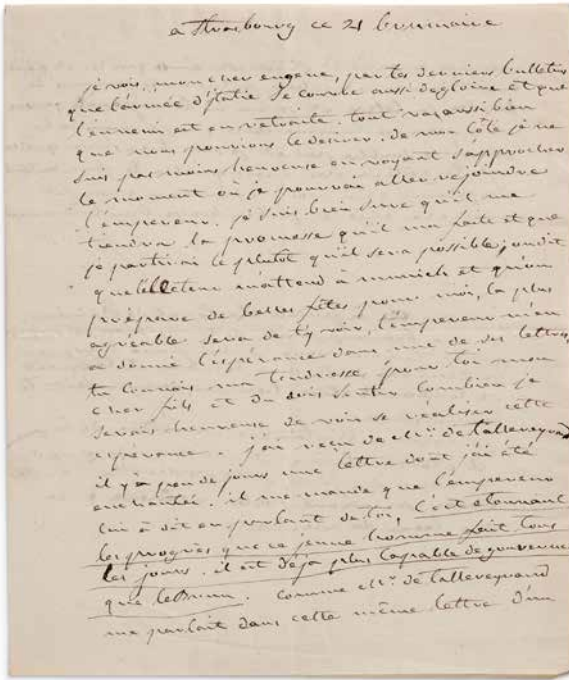 a Strasbourg ce 21 brumaire
je vois, mon cher eugene, par les derniers bulletins
que l'armée d'italie se couvre aussi de gloire et que
l'ennemi est en retraite. tout va aussi bien
que nous pouvions le desirer. de mon côté je ne
suis pas moins heureuse en voyant s'approcher
le moment où je pourrai aller rejoindre
l'empereur. je suis bien sure qu'il me
tiendra la promesse qu'il m'a faite et que
je partirai le plutot qu'il sera possible, on dit
que l'electeur m'attend à munich et qu'on
prépare de belles fêtes pour moi, la plus
agréable sera de t'y voir, l'empereur m'en
a donné l'espérance dans une de ses lettres,
tu connais ma tendresse pour toi mon
cher fils et tu dois sentir combien je
serois heureuse de voir se réaliser cette
espérance. j'ai reçu de Mr. de talleyrand
il y a peu de jours une lettre dont j'ai été
enchantée. il me mande que l'empereur
lui à dit en parlant de toi, c'est etonnant
les progrès que ce jeune homme fait tous
les jours. il est déja plus capable de gouverner
que lebrun. comme Mr. de talleyrand
me parlait dans cette même lettre d'un